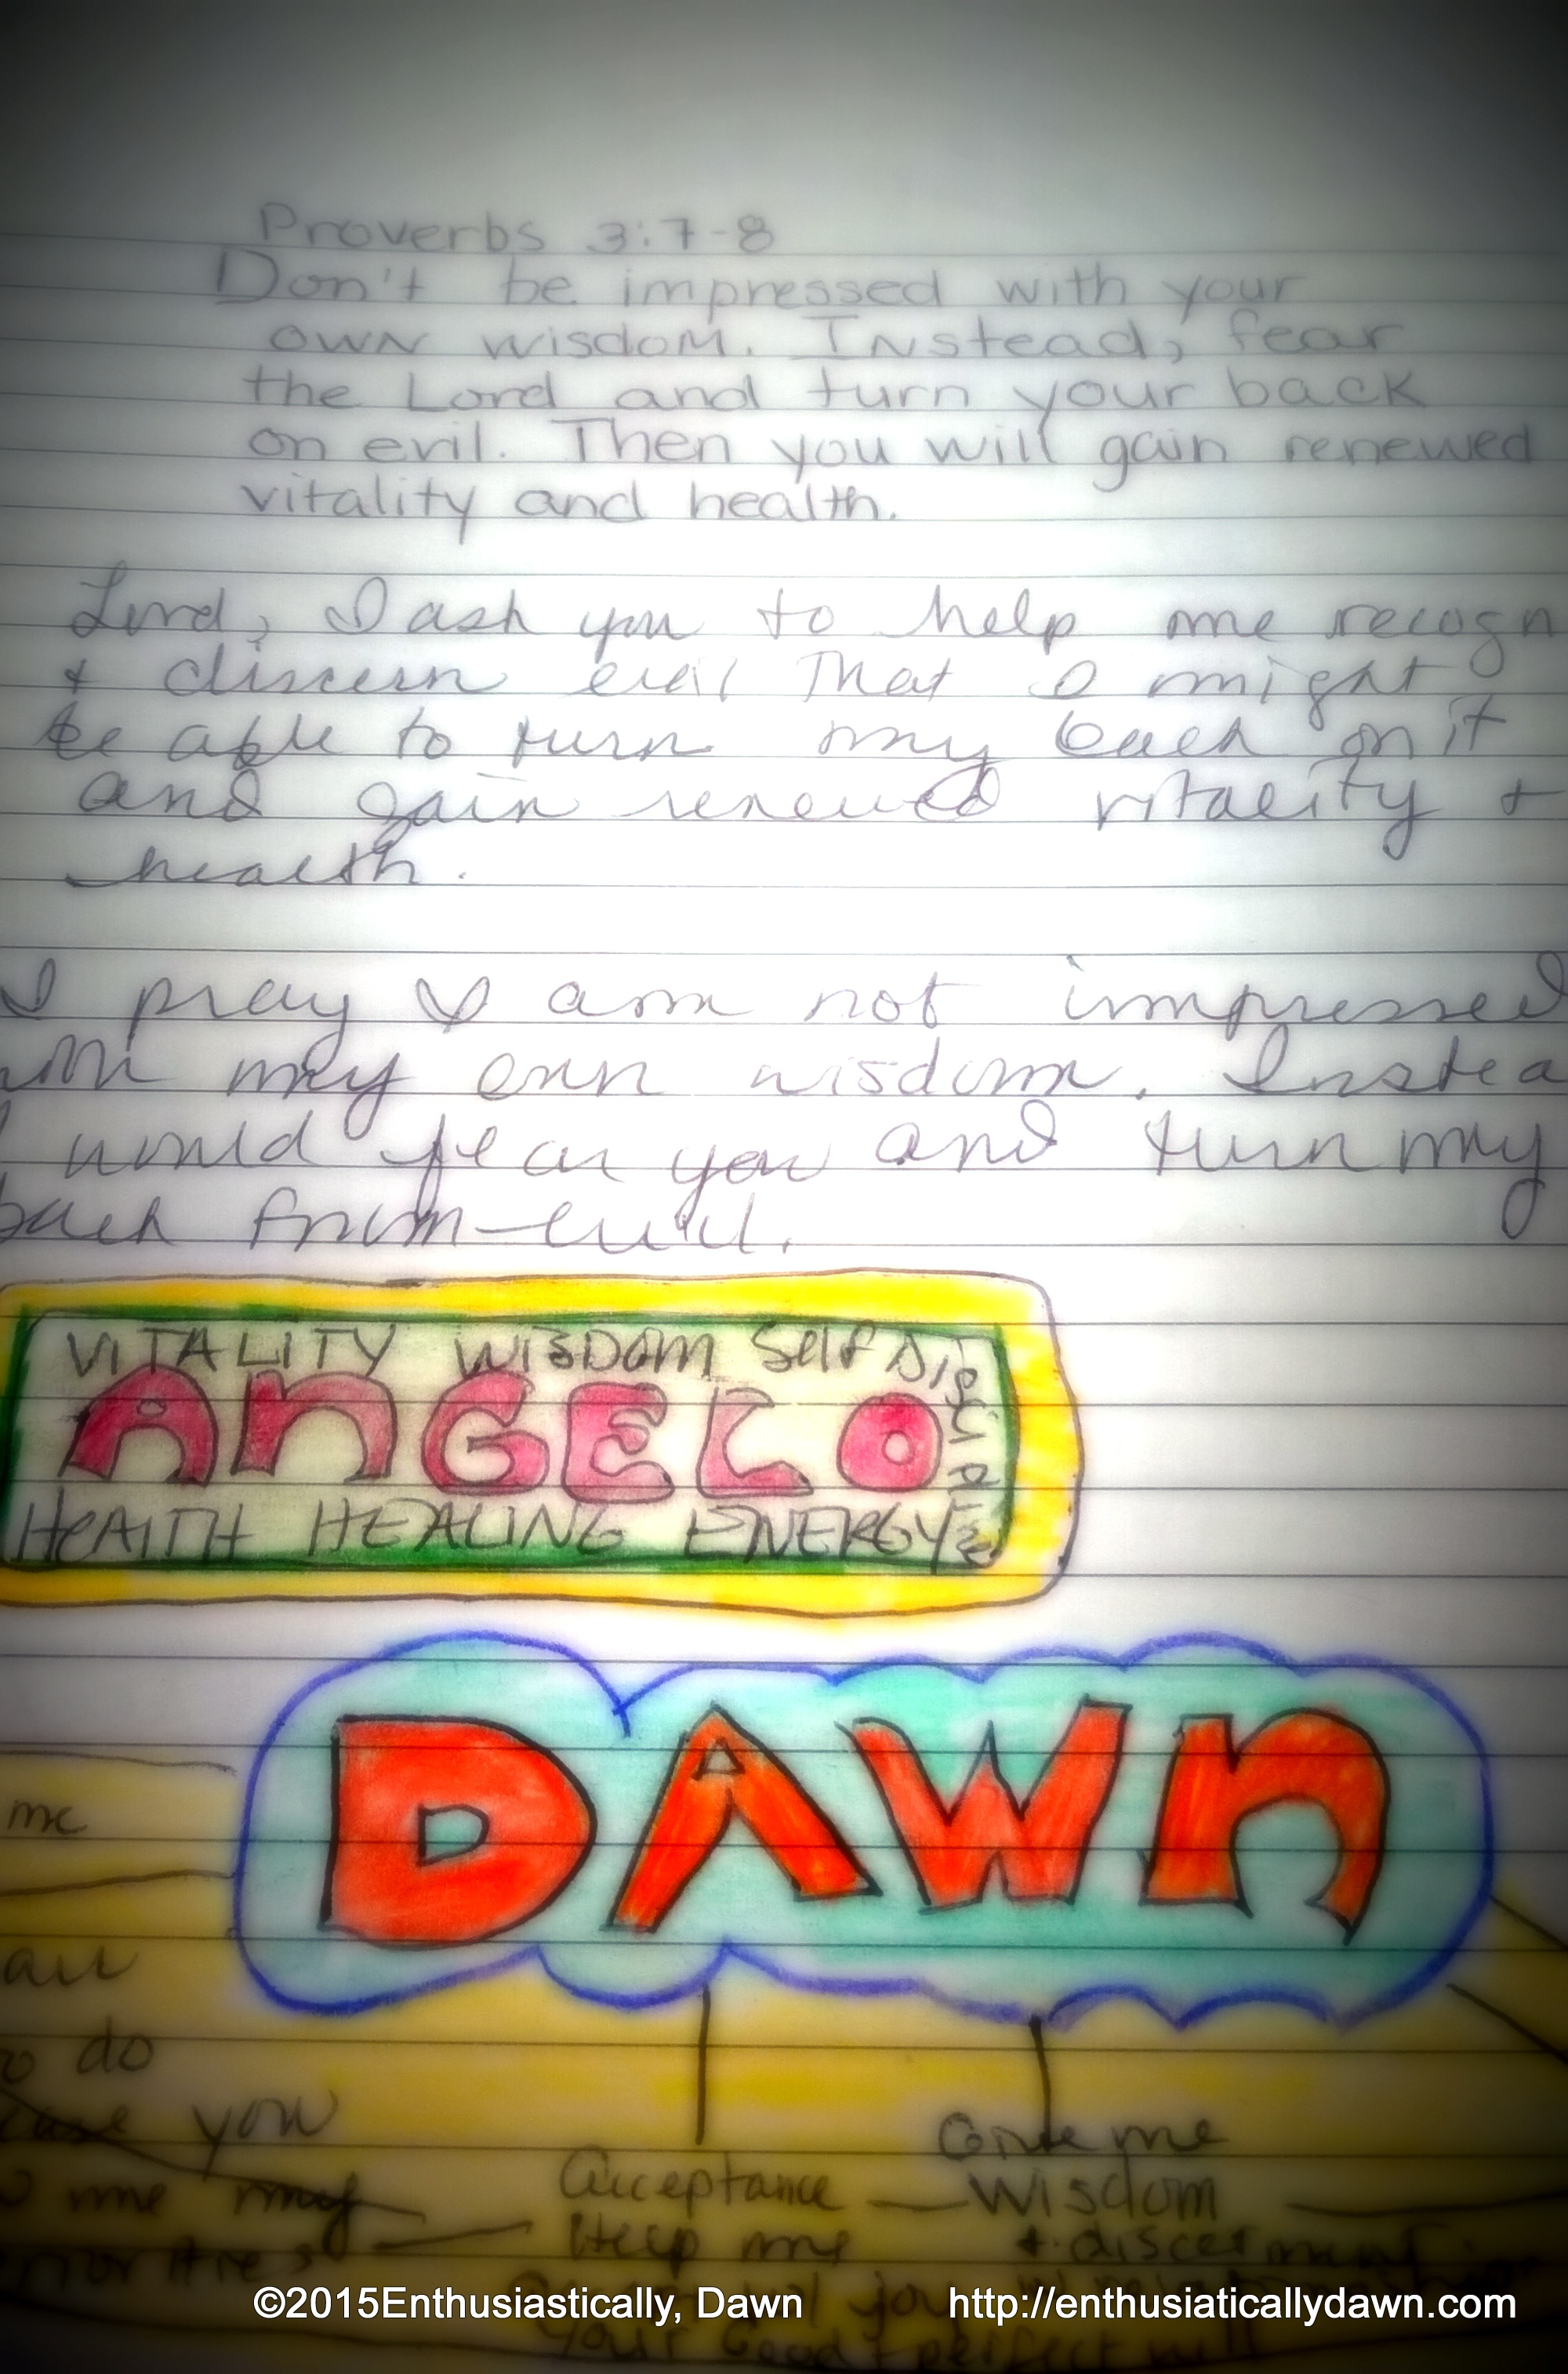 Proverbs 3:7-8
Don't be impressed with your
own wisdom. Instead, fear
the Lord and turn your back
on evil. Then you will gain renewed
vitality and health.
Lord, I ask you to help me recogn
+ discern evil that I might
be able to turn my back on it
and gain renewed vitality +
health.
I pray I am not impressed
with my own wisdom. Instea
I would fear you and turn my
back from evil.
VITALITY WISDOM Self DISCIPLINE
ANGELO
HEALTH HEALING ENERGY
DAWN
me
all
to do
you
me my
Acceptance
Help me
Give me
Wisdom
+ discernment
your Good + perfect will
©2015Enthusiastically, Dawn
http://enthusiaticallydawn.com